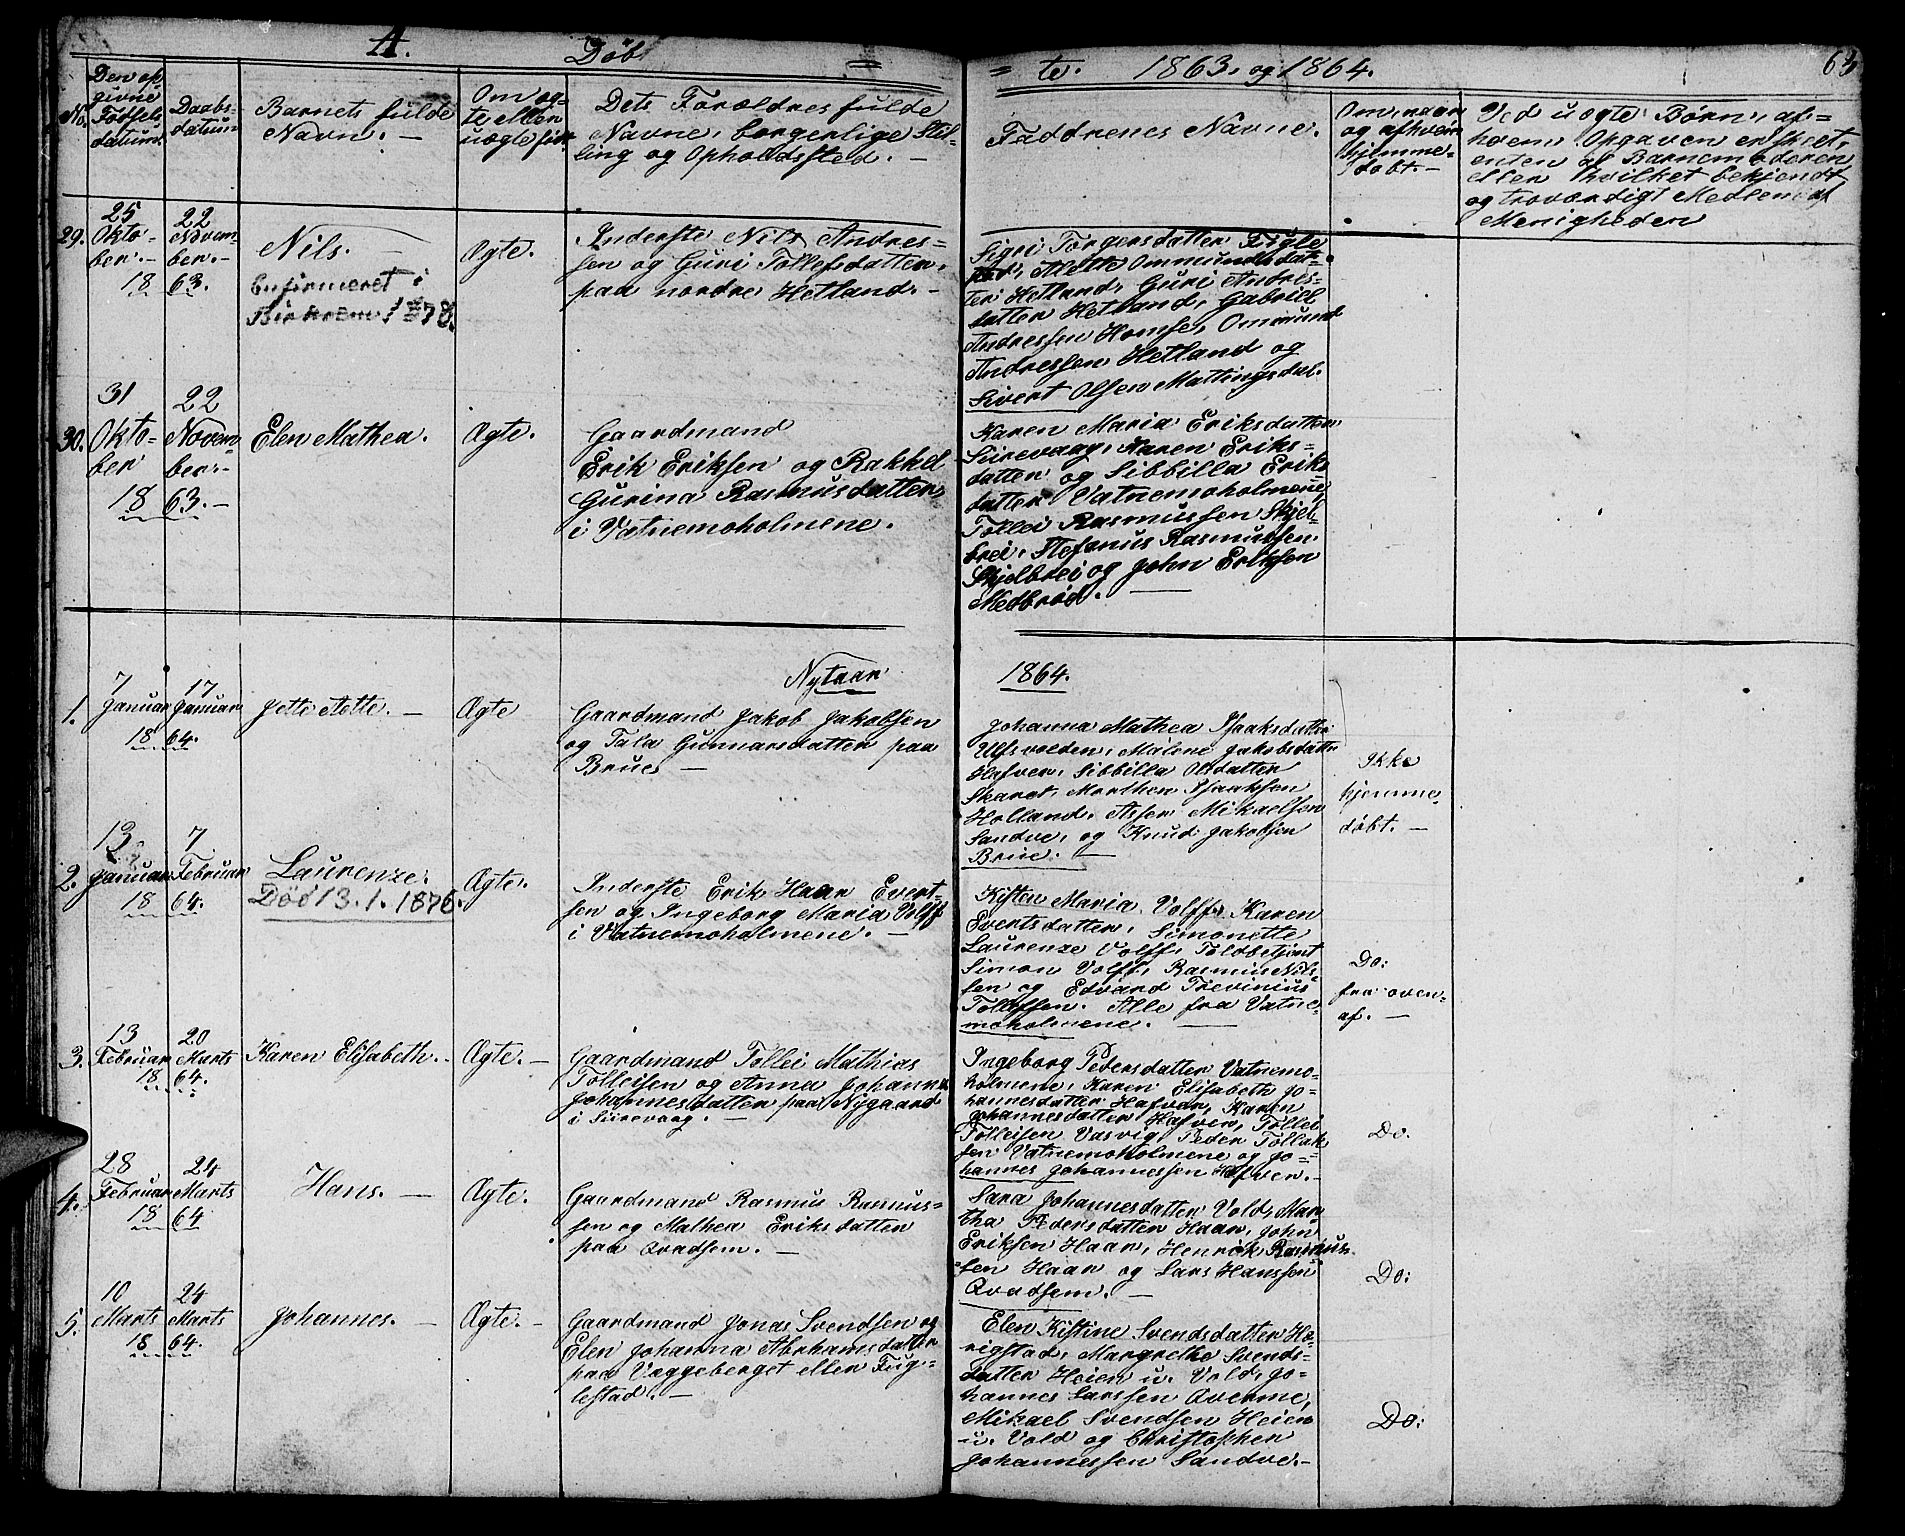 A.
Døb=
=te. 1863. og 1864.
63
No.
Den op=
givne
Fødsels
datum.
Daabs-
datum
Barnets fulde
Navn. —
Om æg=
te eller
uægte født.
Dets Forældres fulde
Navne, borgerlige Stil=
ling og Opholdssted. —
Faddrenes Navne.
Om, naar
og af hvem
hjemme=
døbt. —
Ved uægte Børn, af=
hvem Opgaven er skeet,
enten af Barnemoderen
eller hvilket bekjendt
og troværdigt Medlem af
Menigheden
29.
25
Okto=
ber. —
22
Novem=
ber. —
18 63.
Nils.
Confirmeret i
Birkrem 1878.
Ægte.
Inderste Nils Andres=
sen og Guri Tollefsdatter,
paa nordre Hetland. —
Sigri Torgersdatter Fugle
stad, Alette Ommundsdat=
ter Hetland, Guri Andres=
datter Hetland, Gabriel
Andressen Homse, Ommund
Andressen Hetland og
Sivert Olsen Mattingsdal.
30.
31
Okto=
ber
22
Novem=
ber. —
18 63. —
Elen Mathea.
Ægte.
Gaardmand
Erik Eriksen og Rakkel
Gurina Rasmusdatter,
i Vatnemoholmene.
Karen Maria Eriksdatter
Sirevaag, Karen Eriks=
datter og Sibbilla Eriks
datter Vatnemoholmene,
Tollei Rasmussen Skjel=
brei, Stefanus Rasmussen
Skjelbrei og John Eriksen
Medbrød. —
Nytaar
1864.
1.
7
Januar
17
Januar
18 64.
Jette Aette. —
Ægte
Gaardmand Jakob Jakobsen
og Tala Gunnarsdatter paa
Brue —
Johanna Mathea Isaaksdatter
Ulfsvolden, Målene Jakobsdatter
Hafven, Sibbilla Olsdatter
Skaret, Morthen Isaaksen
Holland, Asser Mikaelsen
Sandve, og Knud Jakobsen
Brue. —
Ikke
hjemme=
døbt. —
2.
13
Januar
7
Februar
18 64.
Laurenze.
Død 13.1.1876.
Ægte.
Inderste Erik Haar Evert=
sen og Ingeborg Maria Volff
i Vatnemoholmene. —
Kisten Maria Volff, Karen
Evertsdatter, Simonette
Laurenze Volff, Toldbetjent
Simon Volff, Rasmus Nil=
sen og Edvard Trevinius
Tollefsen. Alle fra Vatne=
moholmene. —
Do:
fra oven=
af. —
3.
13
Februar
20
Marts
18 64.
Karen Elisabeth. —
Ægte. —
Gaardmand Tollei Mathias
Tolleisen og Anna Johanna
Johannesdatter paa Nygaard
i Sirevaag. —
Ingeborg Pedersdatter Vatnemo=
holmene, Karen Elisabeth Jo=
hannesdatter Hafven, Karen
Johannesdatter Hafven, Tollei
Tolleisen Vasvig, Peder Tollak
sen Vatnemoholmene og Jo=
hannes Johannessen Hafven. —
Do.
4.
28
Februar
24
Marts
18 64
Hans. —
Ægte.
Gaardmand Rasmus Rasmus=
sen og Mathea Eriksdatter
paa Qvadsem. —
Sara Johannesdatter Vold, Mar
tha Pedersdatter Haar, John
Eriksen Haar, Henrik Rasmus=
sen Haar og Lars Hanssen
Qvadsem. —
Do:
5.
10
Marts
24
Marts
18 64.
Johannes. —
Ægte. —
Gaardmand Jonas Svendsen og
Elen Johanna Abrahamsdatter
paa Veggeberget eller Fug=
lestad. —
Elen Kistine Svendsdatter Hø=
rigstad, Margrethe Svends=
datter Heien u. Vold, Jo=
hannes Larssen Qverme,
Mikael Svendsen Heien
u. Vold og Christopher
Johannessen Sandve. —
Do: